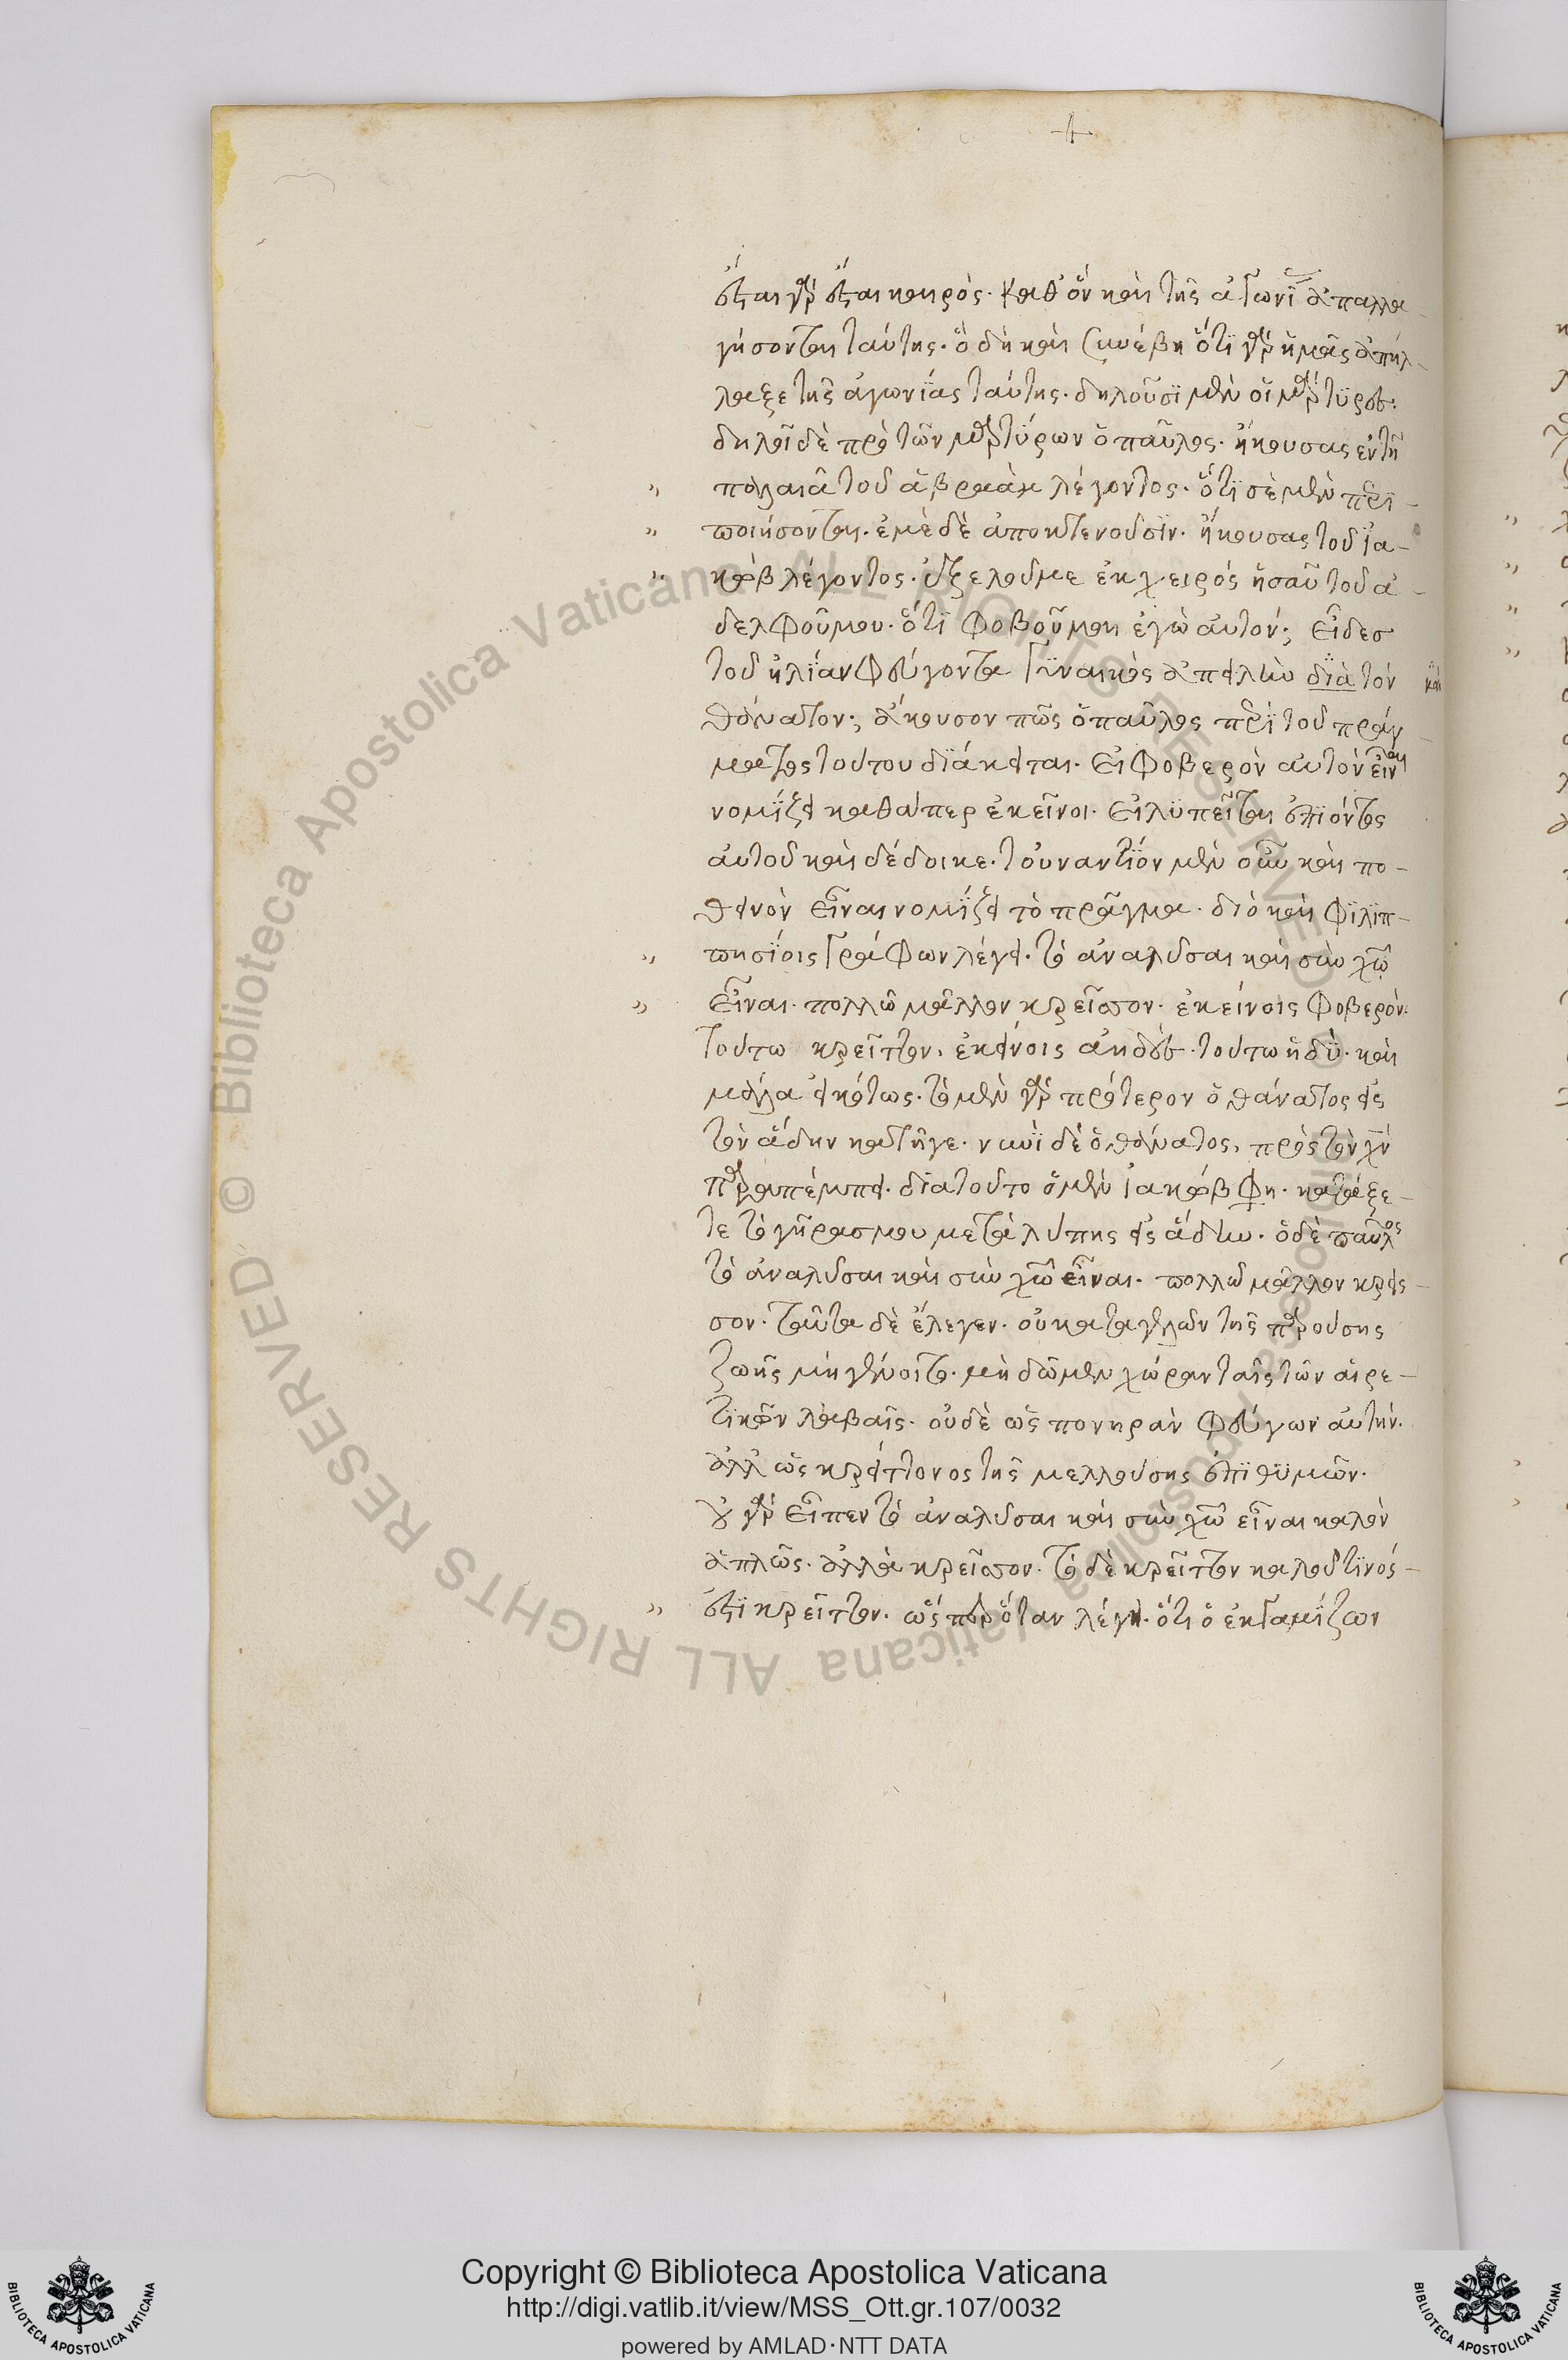 ἔσται γὰρ ἔσται καιρὸς· καθ' ὃν καὶ τῆς ἀγωνί ἀπαλλα-
γήσονται ταύτης· ὃ δὴ καὶ συνέβη ὅτι γὰρ ἡμᾶς ἀπήλ-
λαξε τῆς ἀγωνίας ταύτης· δηλοῦσι μὲν οἱ μάρτυρες·
δηλοῖ δὲ πρὸ τῶν μαρτύρων ὁ παῦλος· ἤκουσας ἐν τῆ
παλαιᾶ τοῦ ἀβραὰμ λέγοντος· ὅτι σὲ μὲν περι-
ποιήσονται· ἐμὲ δὲ ἀποκτενοῦσιν· ἤκουσας τοῦ ἰα-
κὼβ λέγοντος· ἐξελοῦ με ἐκ χειρός ἠσαῦ τοῦ ἀ-
δελφοῦ μου· ὅτι φοβοῦμαι ἐγὼ αὐτόν; εἶδες
τοῦ ἠλίαν φεύγοντα γυναικὸς ἀπειλὴν διὰ τὸν
θάνατον; ἄκουσον πῶς ὁ παῦλος περὶ τοῦ πράγ-
ματος τούτου διάκειται· εἰ φοβερὸν αὐτὸν εἶναι
νομίζει καθάπερ ἐκεῖνοι· εἰ λυπεῖται ἐπιόντος
αὐτοῦ καὶ δέδοικε· τοὐναντίον μὲν οὖν καὶ πο-
θεινὸν εἶναι νομίζει τὸ πρᾶγμα· διὸ καὶ φιλιπ-
πησίοις γράφων λέγει· τὸ ἀναλῦσαι καὶ σὺν χῶ
εἶναι· πολλῶ μᾶλλον κρεῖσσον· ἐκείνοις φοβερὸν·
τούτω κρεῖττον· ἐκείνοις ἀηδὲς· τούτω ἡδὺ· καὶ
μάλα εἰκότως· τὸ μὲν γὰρ πρότερον ὁ θάνατος εἰς
τὸν ἅδην κατῆγε· νυνὶ δὲ ὁ θάνατος, πρὸς τὸν χν
παραπέμπει· διὰ τοῦτο ὁ μὲν ἰακὼβ φη· κατάξε-
τε τὸ γῆρας μου μετὰ λύπης εἰς ἅδην· ὁ δὲ παῦλος
τὸ ἀναλῦσαι καὶ σὺν χῶ εἶναι· πολλῶ μᾶλλον κρεῖσ-
σον· ταῦτα δὲ ἔλεγεν· οὐ καταγελῶν τῆς παρούσης
ζωῆς μὴ γένοιτο· μὴ δῶμεν χώραν ταῖς τῶν αἱρε-
τικῶν λαβαῖς· οὐδὲ ὡς πονηρὰν φεύγων αὐτὴν·
ἀλλ' ὡς κρείττονος τῆς μελλούσης ἐπιθυμῶν·
οὐ γὰρ εἶπεν τὸ ἀναλῦσαι καὶ σὺν χῶ εἶναι καλὸν
ἁπλῶς· ἀλλὰ κρεῖσσον· τὸ δὲ κρεῖττον καλοῦ τινός-
ἐστι κρεῖττον· ὥσπερ ὅταν λέγη· ὅτι ὁ ἐκγαμίζων
Copyright © Biblioteca Apostolica Vaticana
http://digi.vatlib.it/view/MSS_Ott.gr.107/0032
powered by AMLAD·NTT DATA